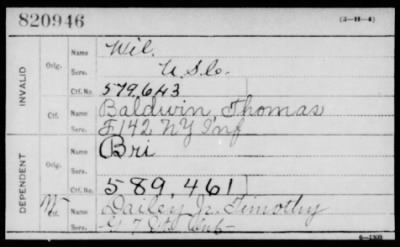 820946 (3-11-4)
INVALID
Orig. Name Wil.
Serv. U.S.C.
Ctf. No. 579,643
Ctf. Name Baldwin, Thomas
Serv. F 142 NY Inf
DEPENDENT
Orig. Name Bri
Serv.
Ctf. No. 589,461
Ctf. Name Dailey Jr. Timothy
Serv.
6-1303